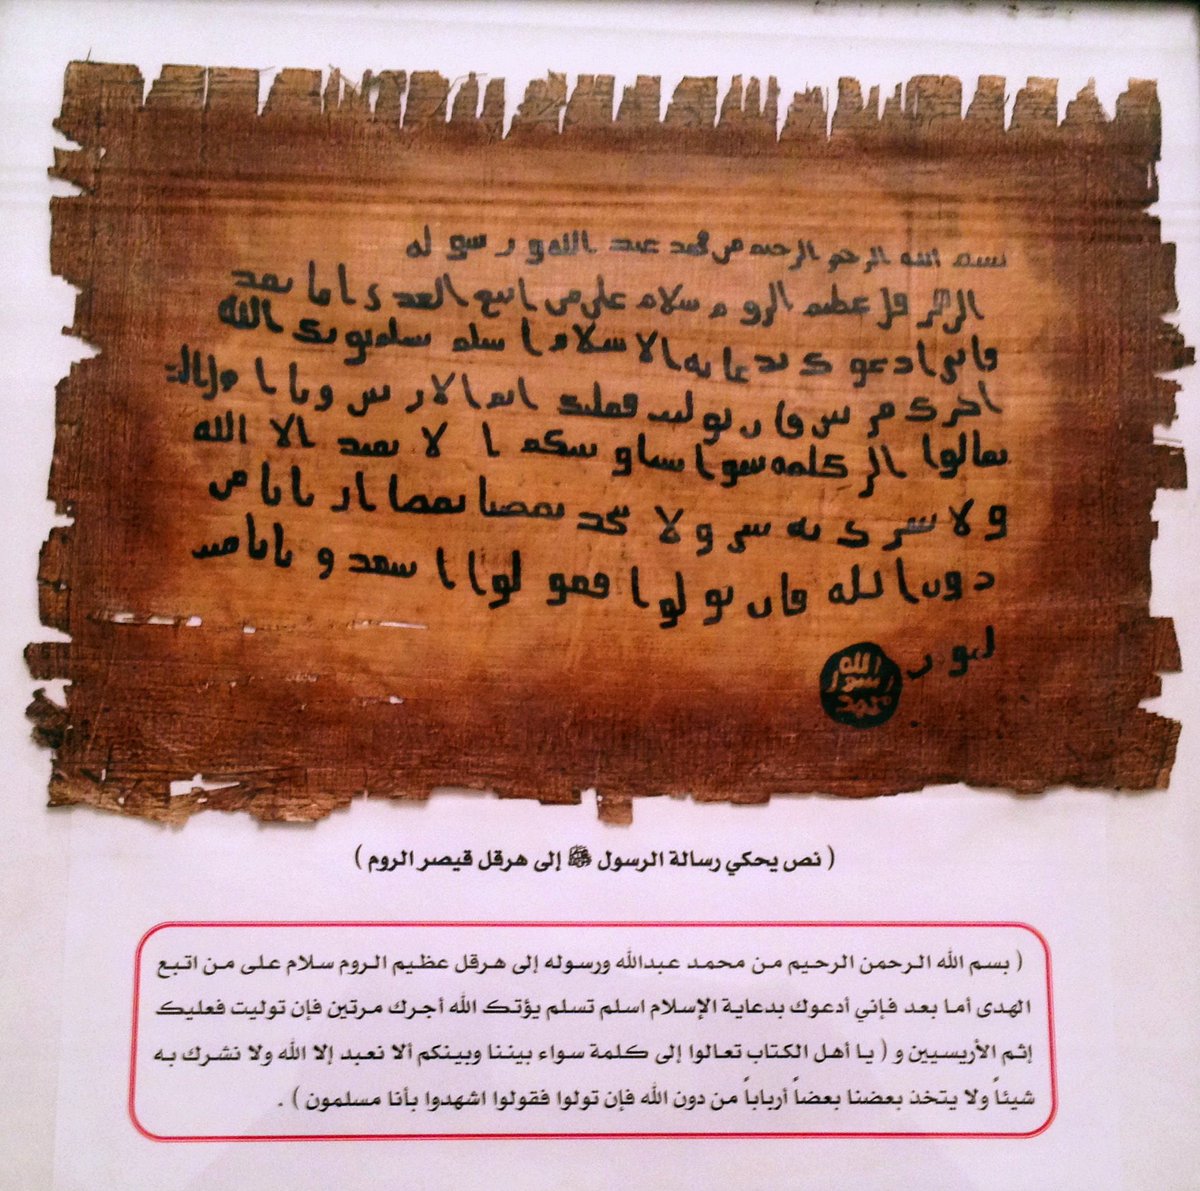 بسم الله الرحمن الرحيم من محمد عبد الله ورسوله
الى هرقل عظيم الروم سلام على من اتبع الهدى اما بعد
فاني ادعوك بدعاية الاسلام اسلم تسلم يوتك الله
اجرك مرتين فان توليت فعليك اثم الاريسين ويا
تعالوا الى كلمة سوا بيننا وبينكم ا لا نعبد الا الله
ولا نشرك به ولا يتخذ بعضنا بعضا اربابا من
دون الله فان تولوا فقولوا اشهدوا بانا مسـ
لمون
الله
رسول
محمد
( نص يحكي رسالة الرسول ﷺ إلى هرقل قيصر الروم )
( بسم الله الرحمن الرحيم من محمد عبدالله ورسوله إلى هرقل عظيم الروم سلام على من اتبع
الهدى أما بعد فإني أدعوك بدعاية الإسلام اسلم تسلم يؤتك الله أجرك مرتين فإن توليت فعليك
إثم الأريسيين و ( يا أهل الكتاب تعالوا إلى كلمة سواء بيننا وبينكم ألا نعبد إلا الله ولا نشرك به
شيئاً ولا يتخذ بعضنا بعضاً أرباباً من دون الله فإن تولوا فقولوا اشهدوا بأنا مسلمون ) .